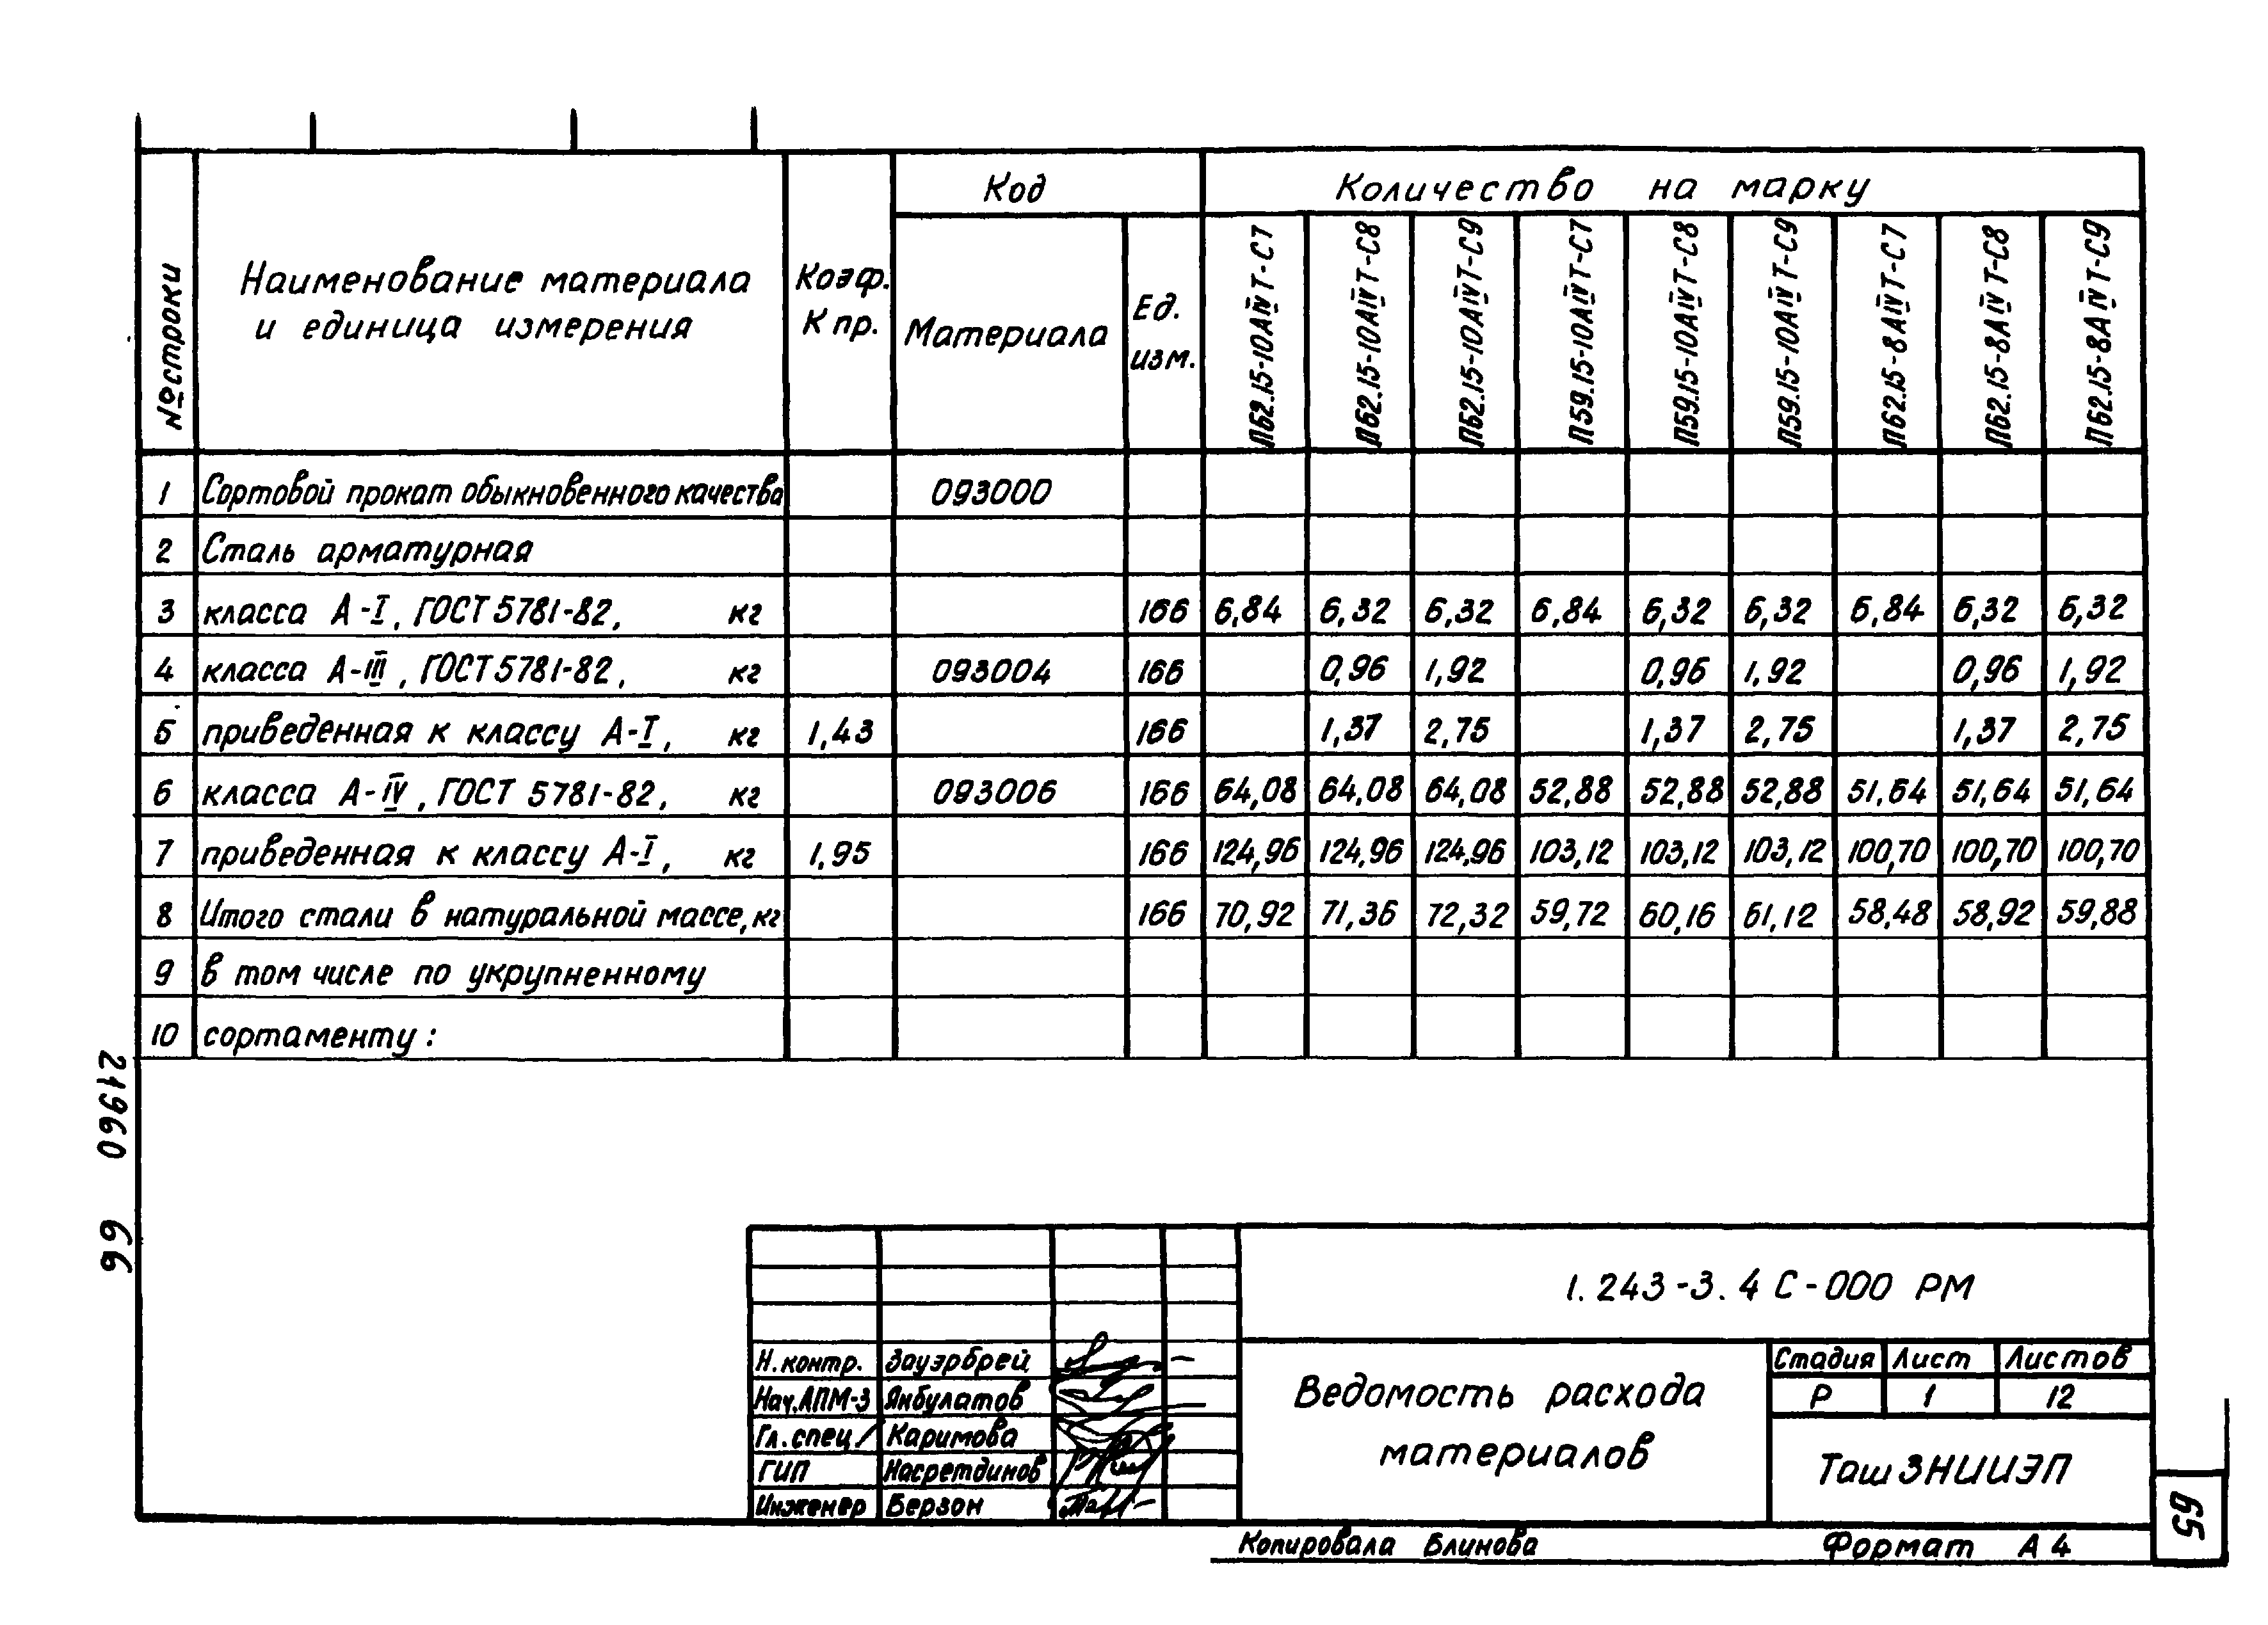 № строки
Наименование материала
и единица измерения
Коэф.
К пр.
Код
Материала
Ед.
изм.
Количество на марку
П62.15-10АIVТ-С7
П62.15-10АIVТ-С8
П62.15-10АIVТ-С9
П59.15-10АIVТ-С7
П59.15-10АIVТ-С8
П59.15-10АIVТ-С9
П62.15-8АIVТ-С7
П62.15-8АIVТ-С8
П62.15-8АIVТ-С9
1 Сортовой прокат обыкновенного качества 093000
2 Сталь арматурная
3 класса А-I, ГОСТ 5781-82, кг 166 6,84 6,32 6,32 6,84 6,32 6,32 6,84 6,32 6,32
4 класса А-III, ГОСТ 5781-82, кг 093004 166 0,96 1,92 0,96 1,92 0,96 1,92
5 приведенная к классу А-I, кг 1,43 166 1,37 2,75 1,37 2,75 1,37 2,75
6 класса А-IV, ГОСТ 5781-82, кг 093006 166 64,08 64,08 64,08 52,88 52,88 52,88 51,64 51,64 51,64
7 приведенная к классу А-I, кг 1,95 166 124,96 124,96 124,96 103,12 103,12 103,12 100,70 100,70 100,70
8 Итого стали в натуральной массе, кг 166 70,92 71,36 72,32 59,72 60,16 61,12 58,48 58,92 59,88
9 в том числе по укрупненному
10 сортаменту:
21960 66
1.243-3.4 С-000 РМ
Н. контр. Зауэрбрей
Нач. АПМ-3 Янбулатов
Гл. спец. Каримова
ГИП Насретдинов
Инженер Берзон
Ведомость расхода
материалов
Стадия Лист Листов
Р 1 12
ТашЗНИИЭП
Копировала Блинова Формат А4
65